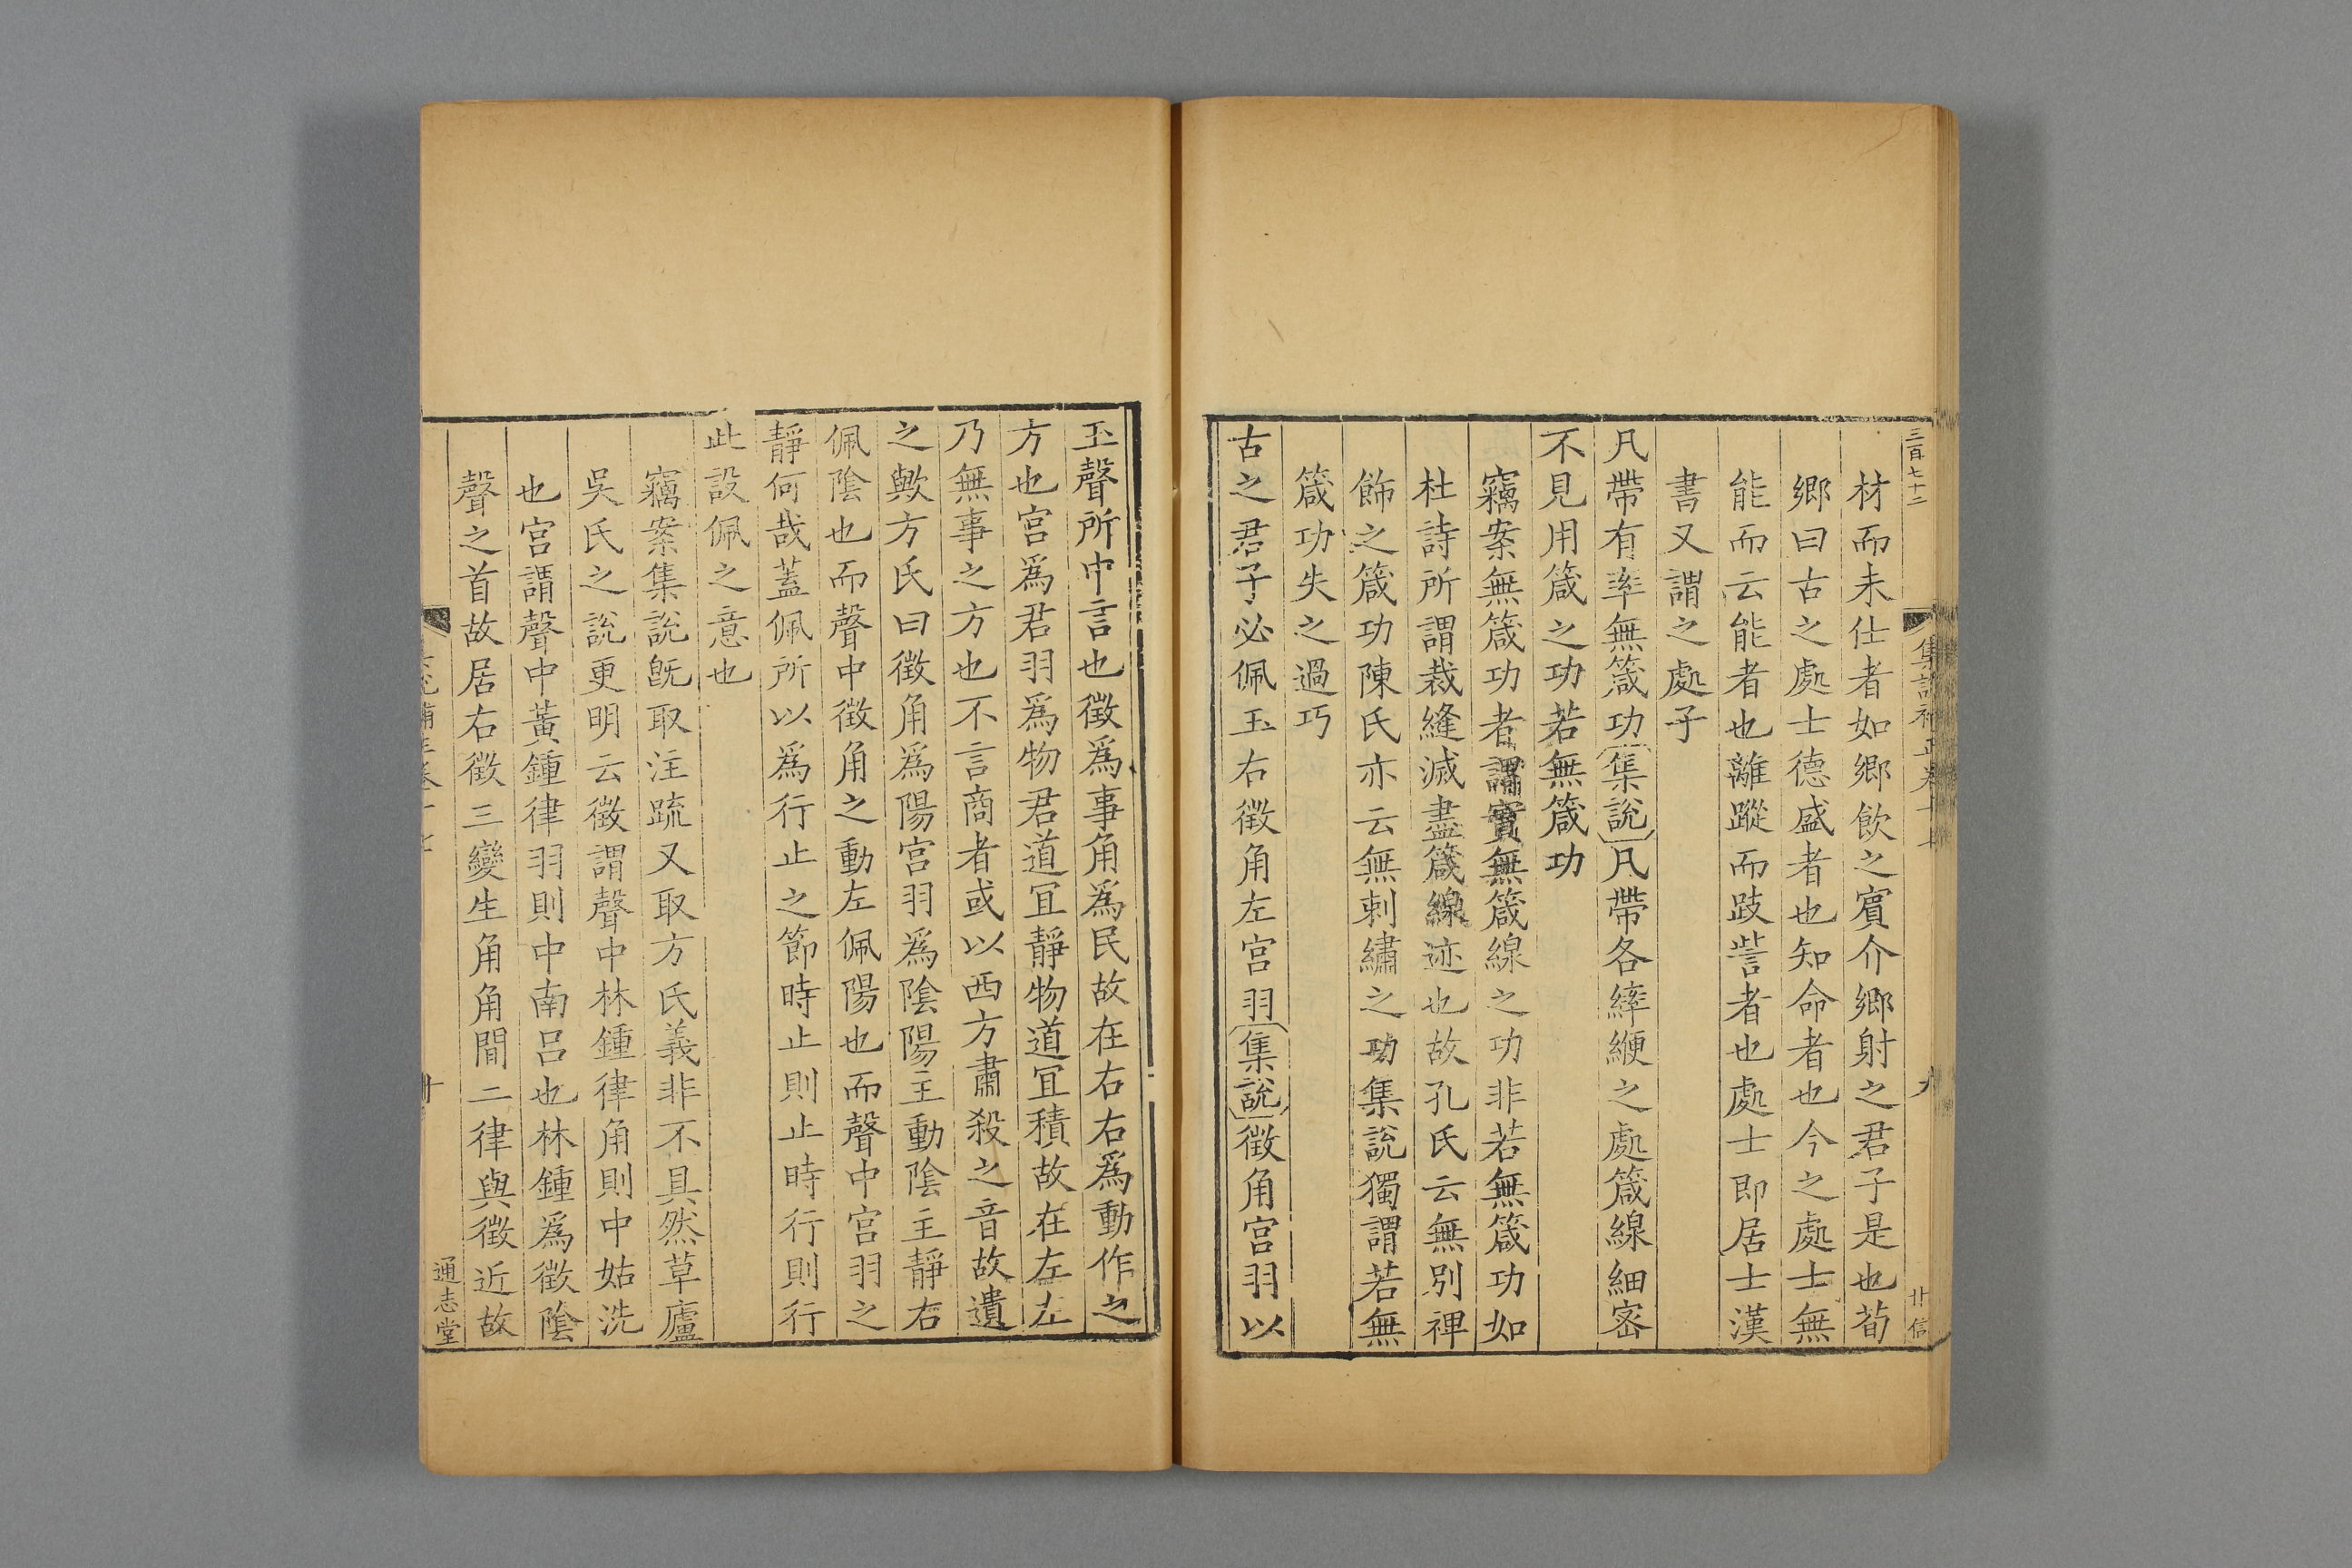 三百七十二
九
廿信
材而未仕者如鄉飲之賓介鄉射之君子是也荀
鄉曰古之處士德盛者也知命者也今之處士無
能而云能者也離蹤而跂訾者也處士即居士漢
書又謂之處子
凡帶有率無箴功集說凡帶各繂緶之處箴線細密
不見用箴之功若無箴功
竊案無箴功者謂實無箴線之功非若無箴功如
杜詩所謂裁縫滅盡箴線迹也故孔氏云無別裨
飾之箴功陳氏亦云無刺繡之功集說獨謂若無
箴功失之過巧
古之君子必佩玉右徵角左宮羽集說徵角宮羽以
玉聲所中言也徵爲事角爲民故在右右爲動作之
方也宮爲君羽爲物君道宜靜物道宜積故在左左
乃無事之方也不言商者或以西方肅殺之音故遺
之歟方氏曰徵角爲陽宮羽爲陰陽主動陰主靜右
佩陰也而聲中徵角之動左佩陽也而聲中宮羽之
靜何哉蓋佩所以爲行止之節時止則止時行則行
此設佩之意也
竊案集說旣取注疏又取方氏義非不具然草廬
吳氏之說更明云徵謂聲中林鍾律角則中姑洗
也宮謂聲中黃鍾律羽則中南呂也林鍾爲徵陰
聲之首故居右徵三變生角角間二律與徵近故
通志堂